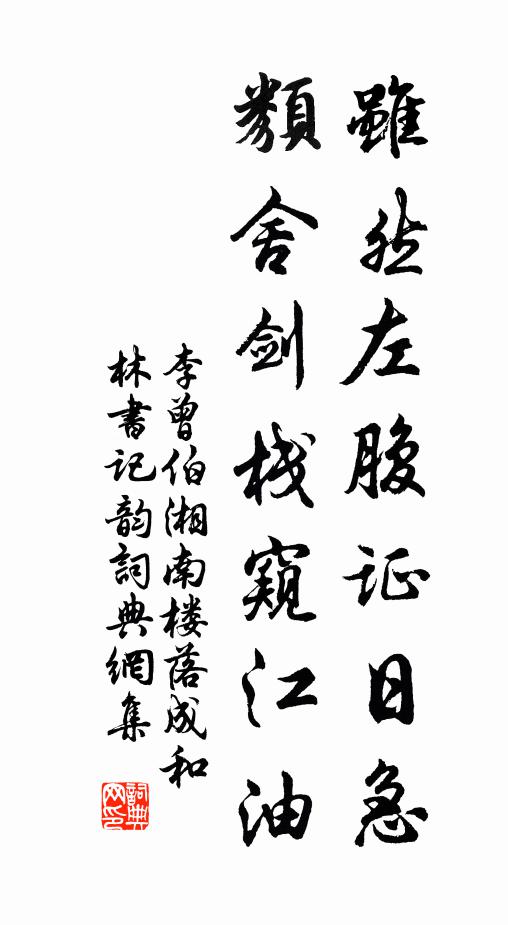 雖然左腹证日急
類舍劍栈窺江油
李曾伯湘南楼落成和
林書记韵詞典網集
詞典网印